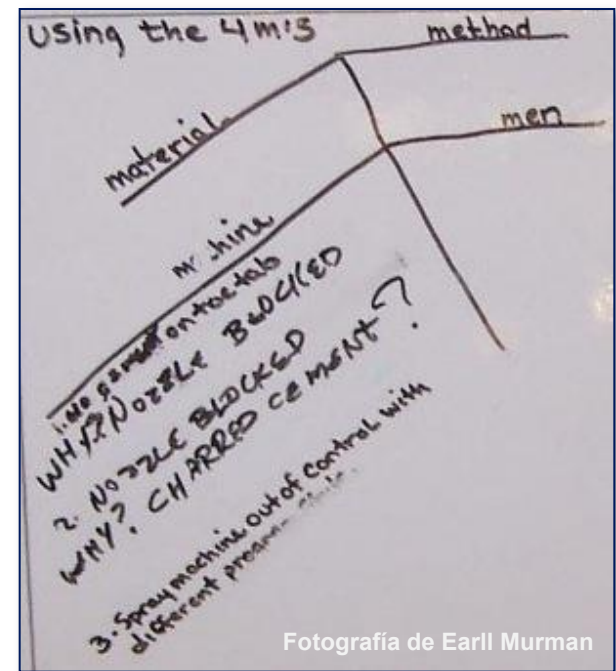 Using the 4m's
method
material
men
on toe tab
WHY? NOZZLE BLOCKED
2. NOZZLE BLOCKED
WHY? CHARRED CEMENT?
3. Spray machine out of control with
different
Fotografía de Earll Murman